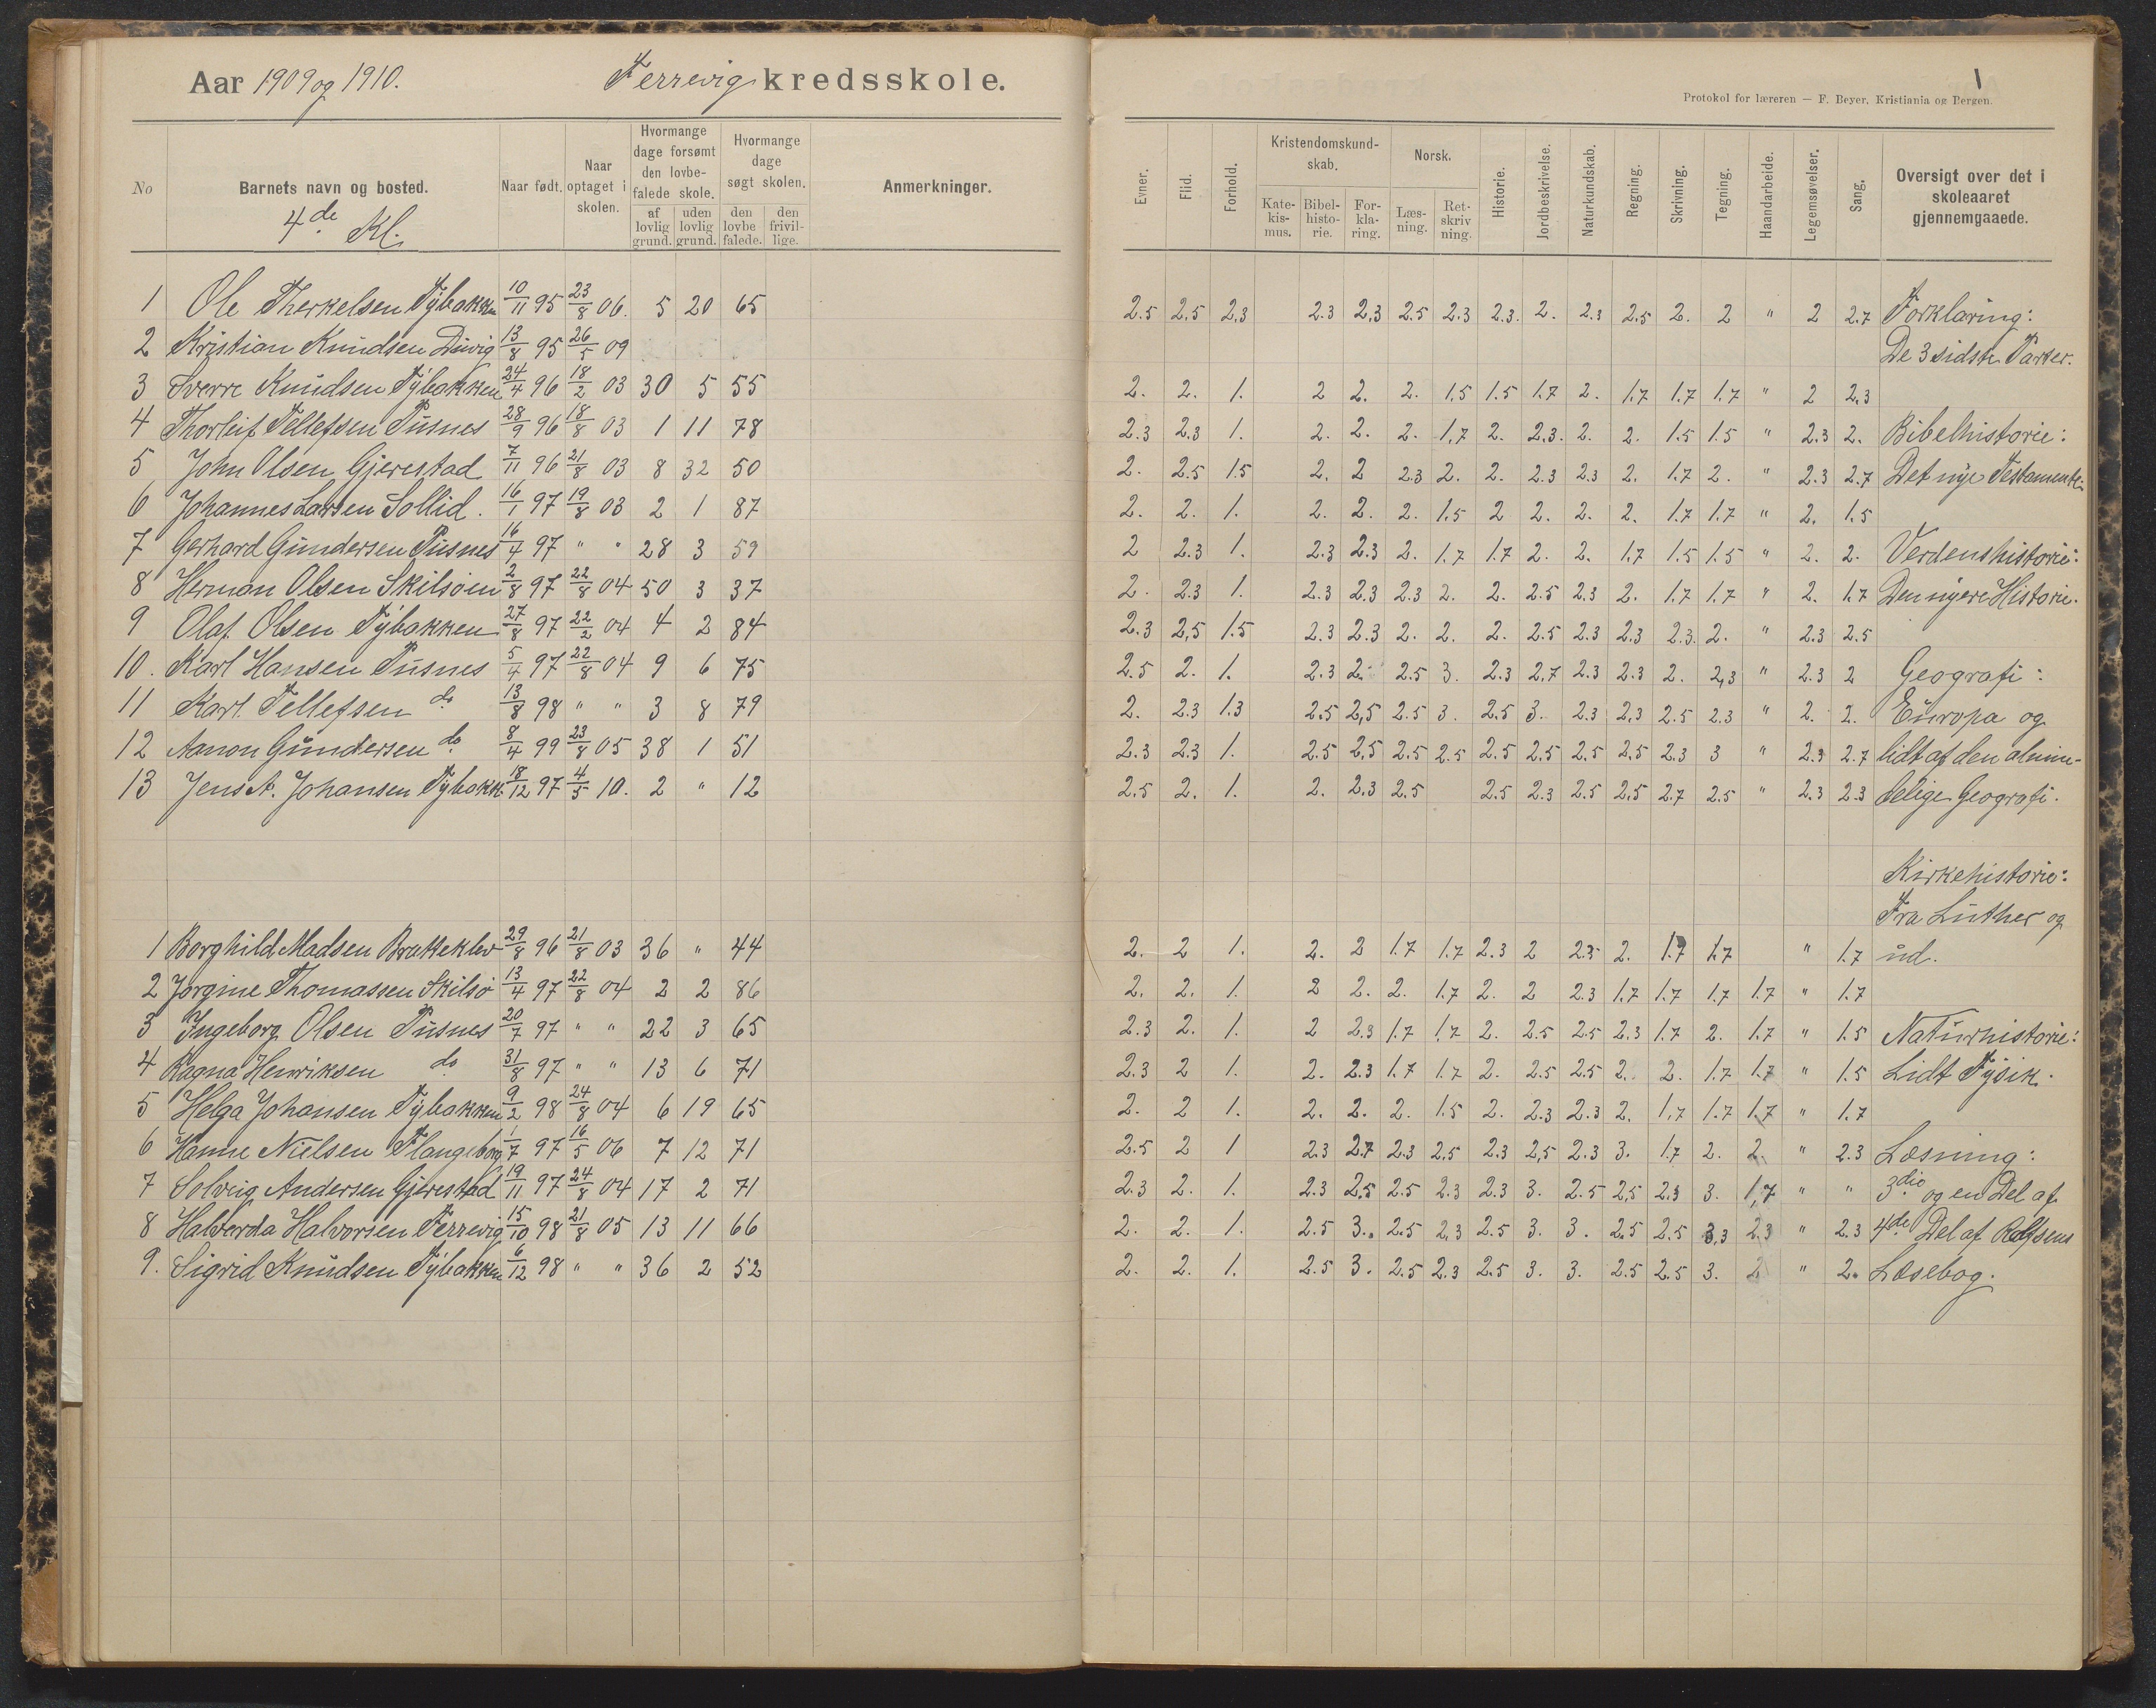 Aar 1909 og 1910. Ferrevig kredsskole.
No Barnets navn og bosted. Naar født. Naar optaget i skolen. Hvormange dage forsømt den lovbefalede skole. af lovlig grund. uden lovlig grund. Hvormange dage søgt skolen. den lovbefalede. den frivillige. Anmerkninger.
4de Kl.
1 Ole Therkelsen Tybakken 10/11 95 23/8 06. 5 20 65
2 Kristian Knudsen Duvig 13/8 95 26/5 09
3 Sverre Knudsen Tybakken 24/4 96 18/2 03 30 5 55
4 Thorleif Tellefsen Pusnes 28/9 96 18/8 03 1 11 78
5 John Olsen Gjerestad 7/11 96 21/8 03 8 32 50
6 Johannes Larsen Sollid. 16/1 97 19/8 03 2 1 87
7 Gerhard Gundersen Pusnes 16/4 97 " " 28 3 59
8 Herman Olsen Skilsøen 2/8 97 22/8 04 50 3 37
9 Olaf Olsen Tybakken 27/8 97 22/2 04 4 2 84
10. Karl Hansen Pusnes 5/4 97 22/8 04 9 6 75
11 Karl Tellefsen do 13/8 98 " " 3 8 79
12 Aanon Gundersen do 8/4 99 23/8 05 38 1 51
13 Jens A. Johansen Tybakk. 18/12 97 4/5 10. 2 " 12
1 Borghild Madsen Bratteklev 29/8 96 21/8 03 36 " 44
2 Jørgine Thomassen Skilsø 13/4 97 22/8 04 2 2 86
3 Ingeborg Olsen Pusnes 20/7 97 " " 22 3 65
4 Ragna Henriksen do 31/8 97 " " 13 6 71
5 Helga Johansen Tybakken 9/2 98 24/8 04 6 19 65
6 Hanne Nielsen Flangeborg 1/7 97 16/5 06 7 12 71
7 Solveig Andersen Gjerestad 19/11 97 24/8 04 17 2 71
8 Halverda Halvorsen Ferrevig 15/10 98 21/8 05 13 11 66
9. Sigrid Knudsen Tybakken 6/12 98 " " 36 2 52
1
Protokol for læreren — F. Beyer, Kristiania og Bergen.
Evner. Flid. Forhold. Kristendomskundskab. Katekismus. Bibelhistorie. Forklaring. Norsk. Læsning. Retskrivning. Historie. Jordbeskrivelse. Naturkundskab. Regning. Skrivning. Tegning. Haandarbeide. Legemsøvelser. Sang. Oversigt over det i skoleaaret gjennemgaaede.
2.5 2,5 2,3 2.3 2,3 2.5 2.3 2.3. 2. 2.3 2.5 2. 2 " 2 2.7 Forklaring:
De 3 sidste Parter.
2. 2. 1. 2 2. 2. 1.5 1.5 1.7 2. 1.7 1.7 1.7 " 2 2,3
2.3 2,3 1. 2. 2. 2. 1,7 2. 2,3. 2. 2. 1.5 1.5 " 2.3 2. Bibelhistorie:
2. 2.5 1.5 2. 2 2.3 2. 2. 2.3 2.3 2. 1.7 2. " 2.3 2.7 Det nye Testamente.
2. 2. 1. 2. 2. 2. 1.5 2 2. 2. 2. 1.7 1.7 " 2. 1.5
2 2.3 1. 2.3 2.3 2. 1.7 1.7 2. 2. 1.7 1.5 1.5 " 2. 2. Verdenshistorie:
2. 2.3 1. 2.3 2.3 2.3 2. 2. 2.5 2.3 2. 1.7 1.7 " 2. 1.7 Den nyere Historie.
2.3 2,5 1.5 2.3 2.3 2. 2. 2. 2.5 2.3 2.3 2.3. 2. " 2.3 2.5
2.5 2. 1. 2.3 2. 2.5 3. 2.3 2,7 2.3 2.3 2. 2,3 " 2.3 2 Geografi:
2. 2.3 1.3 2.5 2,5 2.5 3. 2.5 3. 2.3 2,3 2.5 2.3 " 2. 2. Europa og
2.3 2.3 1. 2.5 2,5 2.5 2.5 2.5 2,5 2,5 2,5 2.3 3 " 2.3 2.7 lidt af den almin-
2.5 2. 1. 2. 2,3 2.5 2.5 2.3 2.5 2,5 2.7 2.5 " 2.3 2.3 delige Geografi.
Kirkehistorie:
Fra Luther og
2. 2 1. 2. 2 1.7 1.7 2.3 2 2.3 2. 1.7 1.7 " 1.7 ud.
2. 2. 1. 2 2. 2. 1.7 2. 2 2.3 1.7 1.7 1.7 1.7 " 1.7
2.3 2. 1. 2 2.3 1.7 1.7 2. 2.5 2.5 2.3 1.7 2. 1.7 " 1.5 Naturhistorie:
2.3 2 1. 2. 2.3 1.7 1.7 2. 2.5 2.5 2. 2. 1.7 1.7 " 1.5 Lidt Fysik.
2. 2 1. 2. 2. 2. 1.5 2. 2.3 2.3 2. 1.7 1.7 1.7 " 1.7
2.5 2 1 2.3 2.7 2.3 2.5 2.3 2,5 2.3 3. 1.7 2. 2. " 2.3 Læsning:
2.3 2. 1. 2.3 2,5 2.5 2.3 2.3 3. 2.5 2,5 2.3 3. 1,7 " " 3die og en Del af
2. 2. 1. 2.5 3. 2.5 2,3 2.5 3. 3. 2.5 2.5 3,3 2.3 " 2.3 4de Del af Rolfsens
2. 2. 1. 2.5 3. 2.5 2.3 2.5 3. 3. 2.5 2.5 3. 2 " 2. Læsebog.